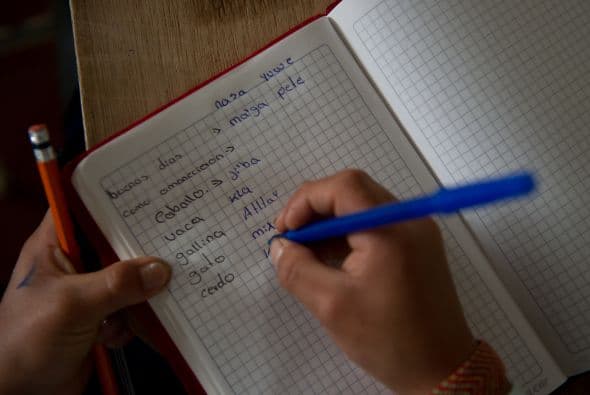 nasa yuwe
buenos dias > maiga pele
como amanecieron >
Caballo > jiba
vaca kla
gallina
gato
cerdo